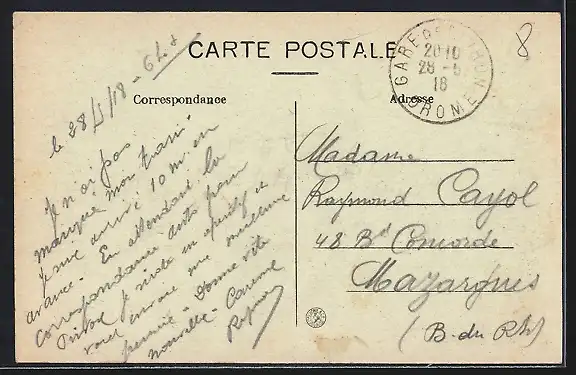 CARTE POSTALE
8
GARE DE
20 10
28 - 5
18
DROME
Correspondance
Adresse
le 28/5/18 - 6h.
Je n'ai pas
manqué mon train.
Je suis arrivé 10 m en
avance. En attendant la
correspondance auto pour
je reste en
vous encore une
pensée - Donne vite
nouvelle -
Raymond
Madame
Raymond Cayol
48 Bd Concorde
Mazargues
(B. du Rh)